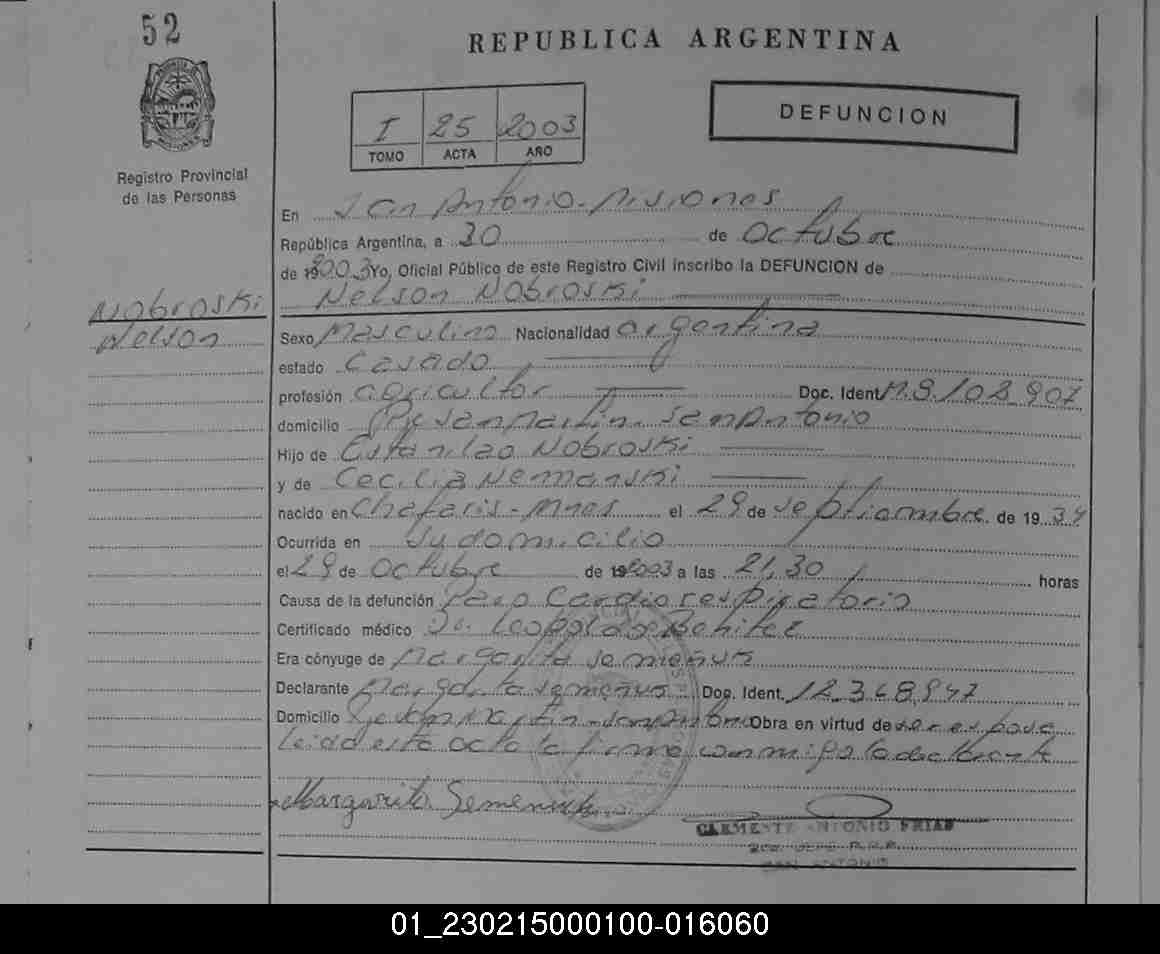 52
REPUBLICA ARGENTINA
I 25 2003
TOMO ACTA AÑO
DEFUNCION
Registro Provincial
de las Personas
En San Antonio - Misiones
República Argentina, a 30 de Octubre
de 2003 Yo, Oficial Público de este Registro Civil inscribo la DEFUNCION de
Nelson Nobroski
Nobroski
Nelson
Sexo Masculino Nacionalidad argentina
estado Casado
profesión agricultor Doc. Ident. M.8.108.907
domicilio San Antonio
Hijo de Estanilao Nobroski
y de Cecilia Nemanski
nacido en - Mnes el 29 de Septiembre de 1934
Ocurrida en Su domicilio
el 29 de Octubre de 2003 a las 21,30 horas
Causa de la defunción Paro Cardiorespiratorio
Certificado médico Dr. Benitez
Era cónyuge de Margarita Semeñuk
Declarante Margarita Semeñuk Doc. Ident. 12.368.947
Domicilio San Antonio Obra en virtud de ser esposa
leida esta acta la firma conmigo la declarante
Margarita Semeniuk
CLEMENTE ANTONIO FRIAS
SAN ANTONIO
01_230215000100-016060